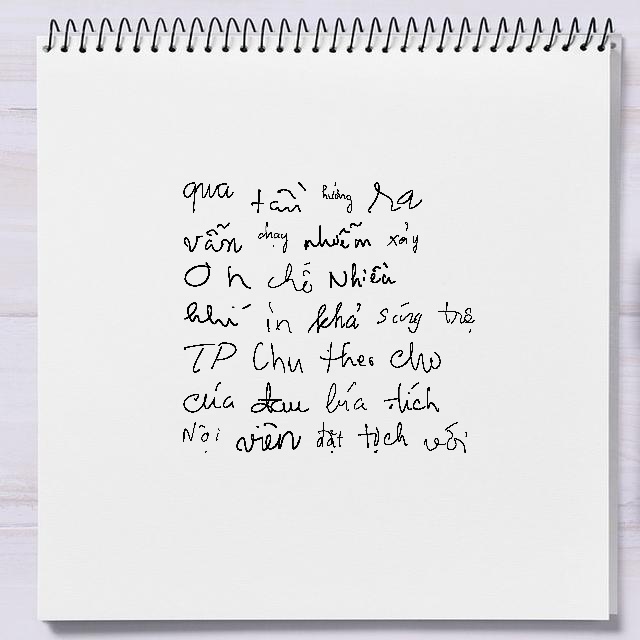 qua tần hưởng ra
vẫn chạy nhuễm xảy
Ơn chế Nhiều
khí in khả sáng trệ
TP Chu theo cho
của đau bía tích
Nội viên đặt tịch với